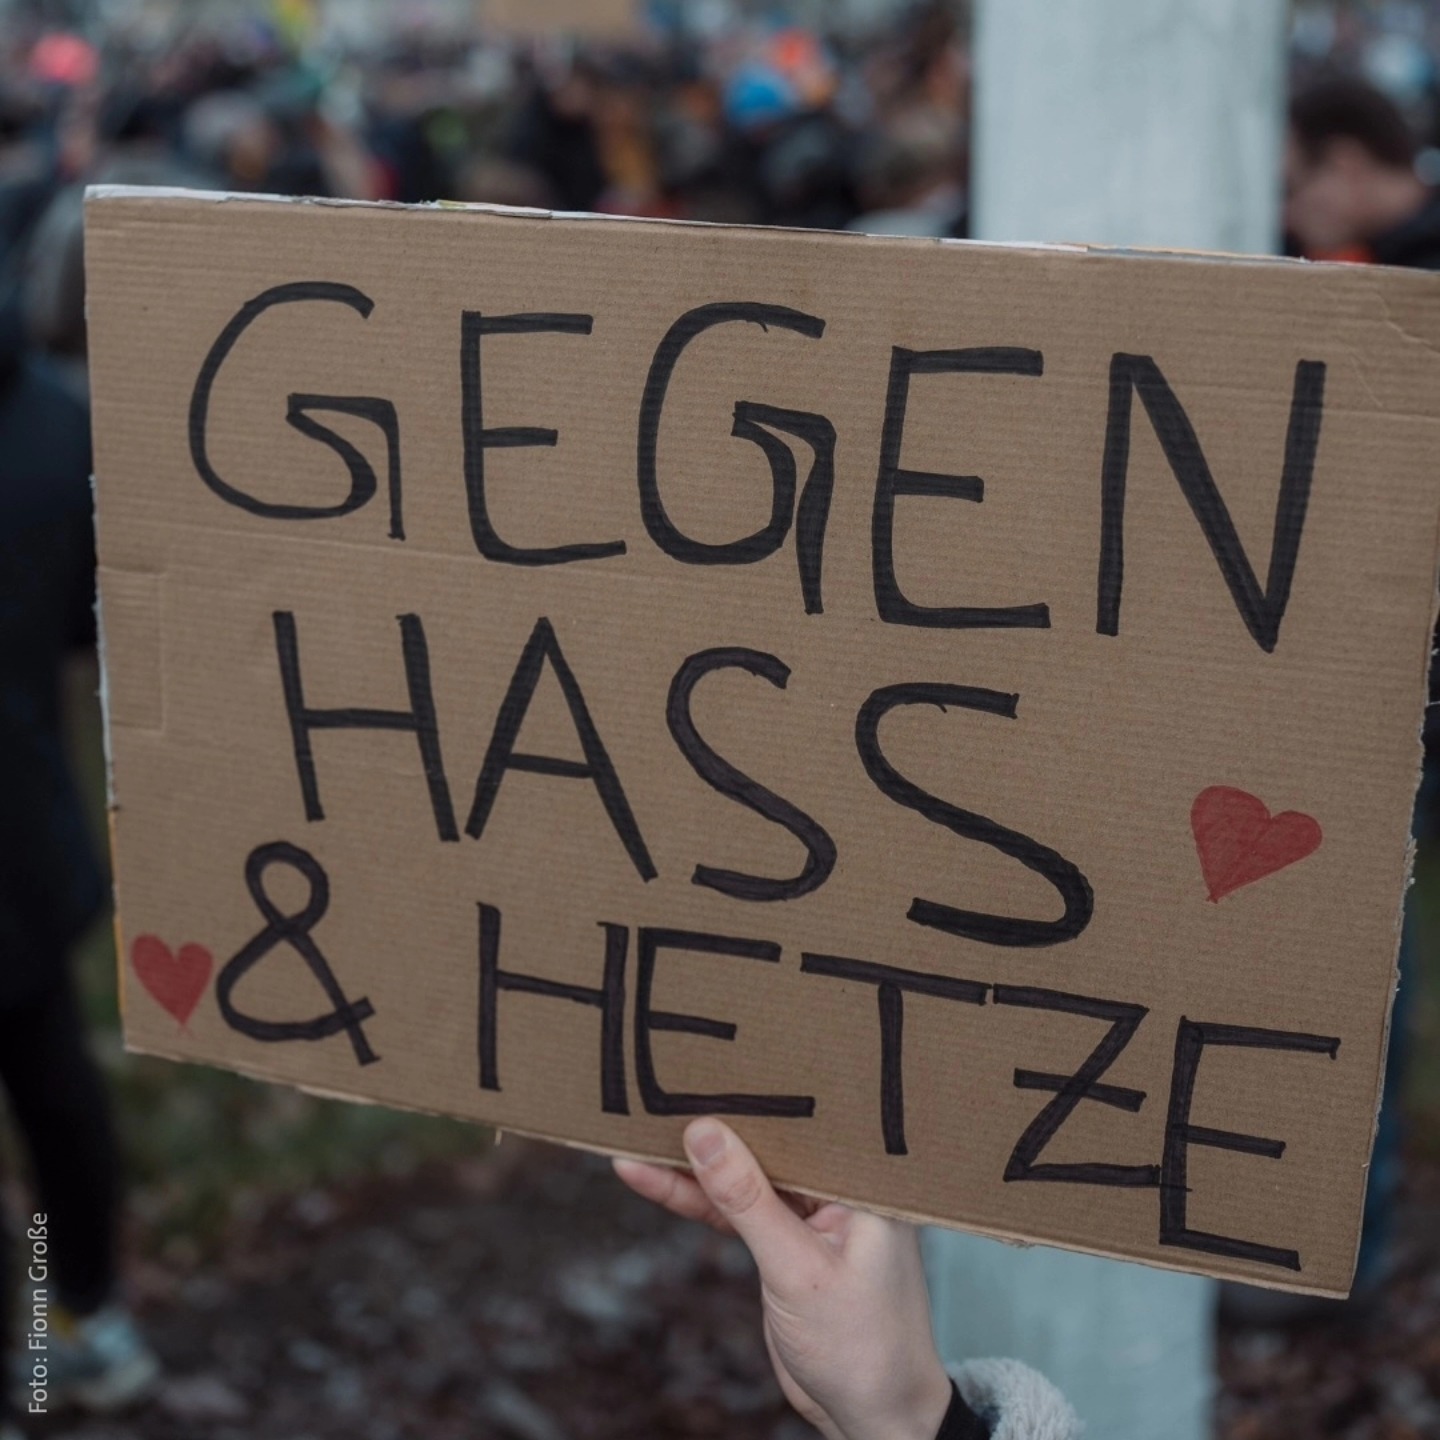 GEGEN
HASS
& HETZE
Foto: Fionn Große